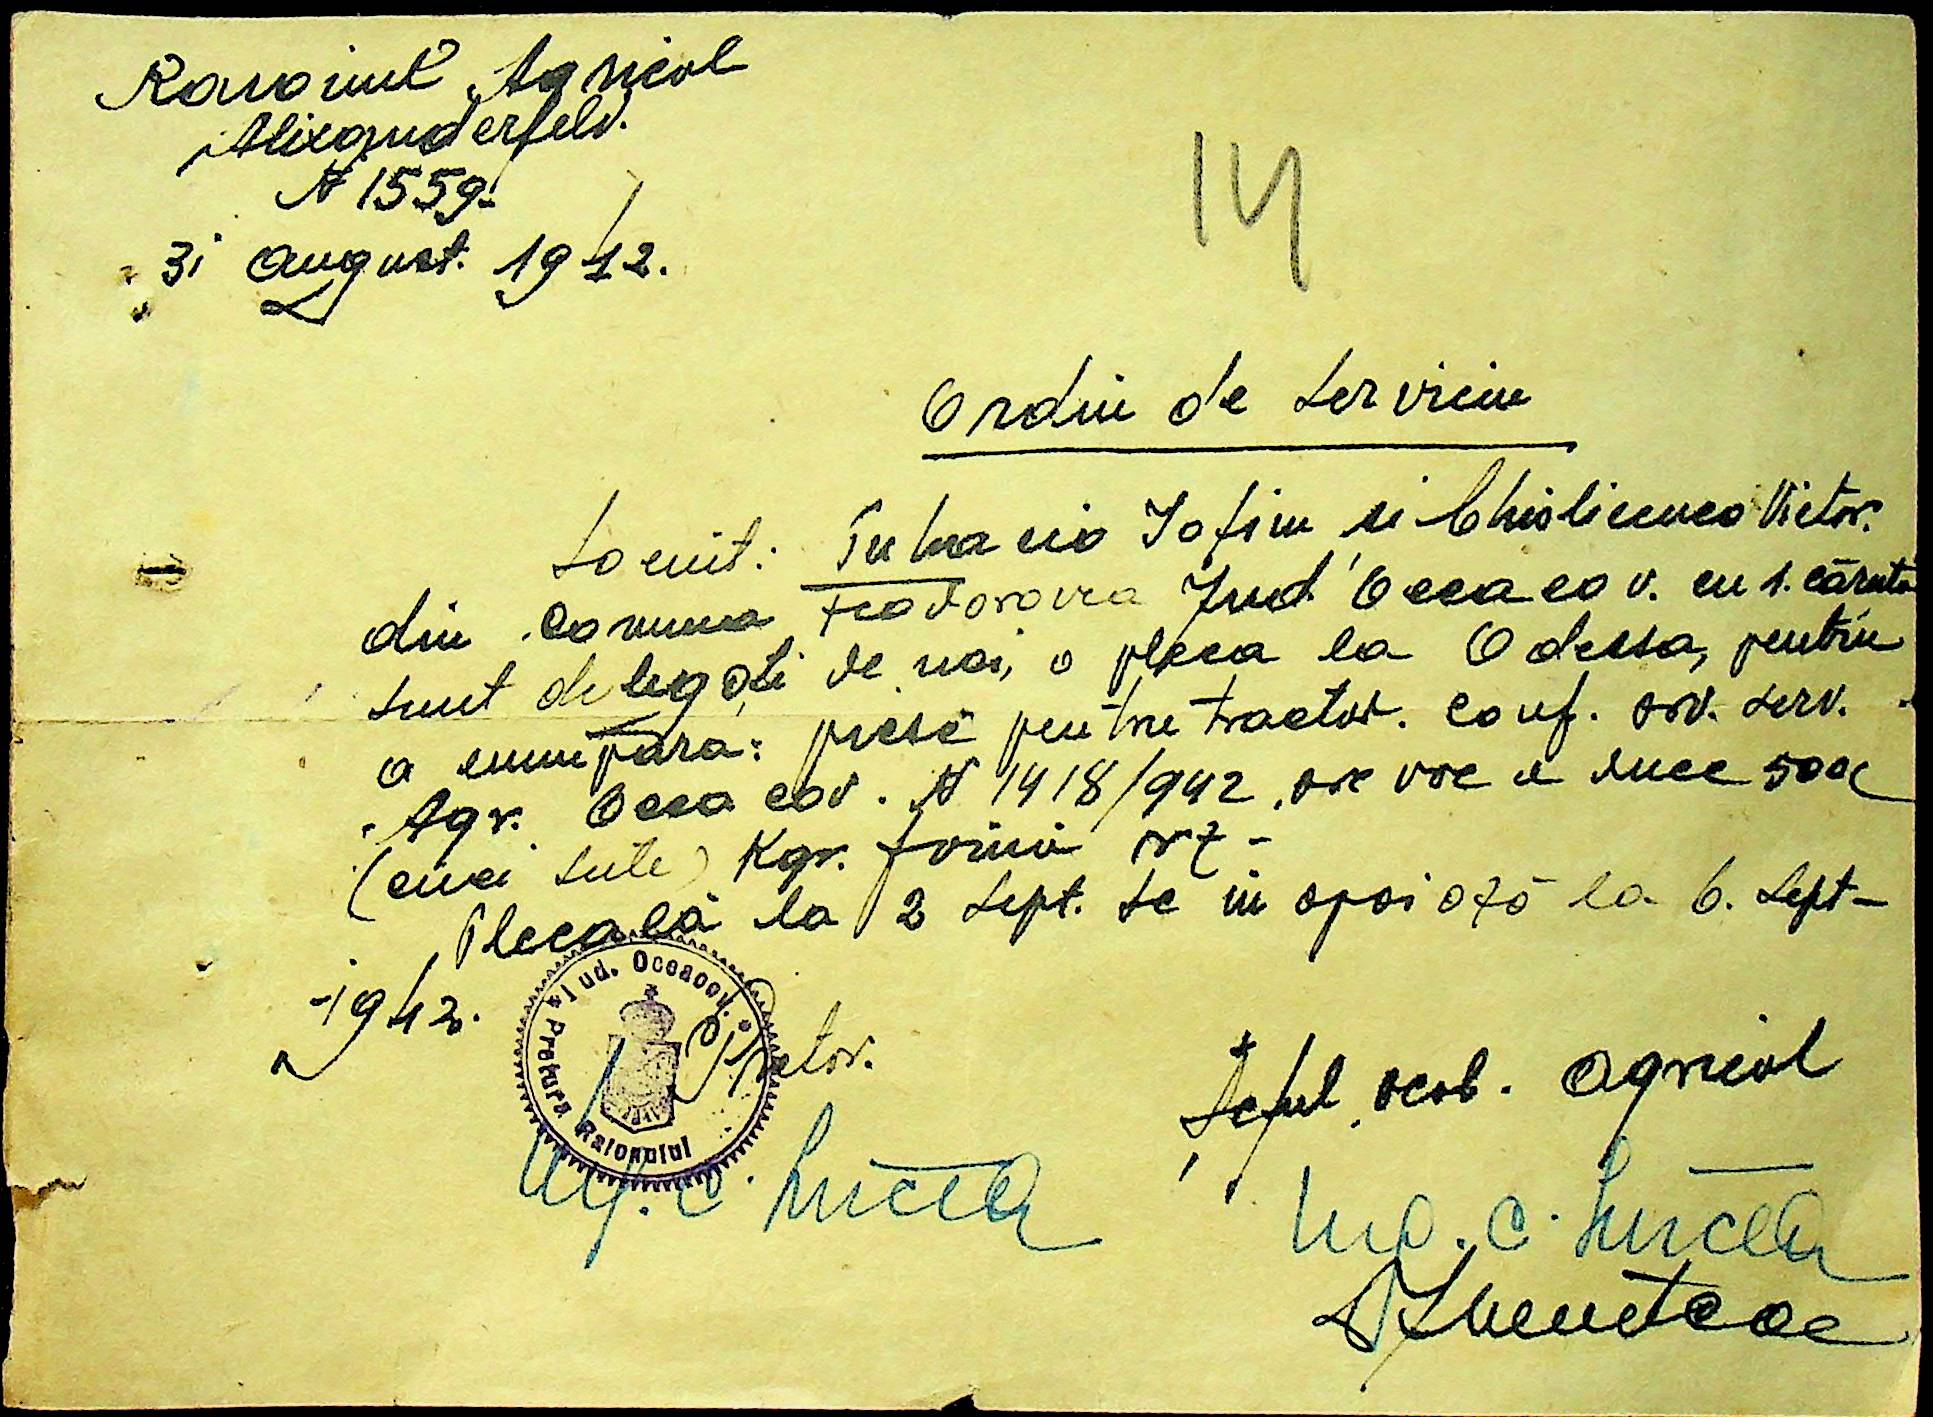 Raionul Agricol
Alexanderfeld.
N 1559.
31 august. 1942.
14
Ordin de serviciu
Iofim si Chislicenco Victor.
din comuna Feodorovca Jud. Oceacov. cu 1. căruta
sunt delegați de noi, a pleca la Odessa, pentru
a cumpara: piese pentru tractor. conf. ord. serv.
Agr. Oceacov. N 1418/942, ore voe a duce 500
(cinci sute) Kgr. făină
Pleacă la 2 Sept. se in apoiază la 6. Sept-
-1942.
Jud. Oceacov.
Pretura Raionului
Pretor.
Șeful, agricol
Ing. C. Mircea
Ing. C. Mircea